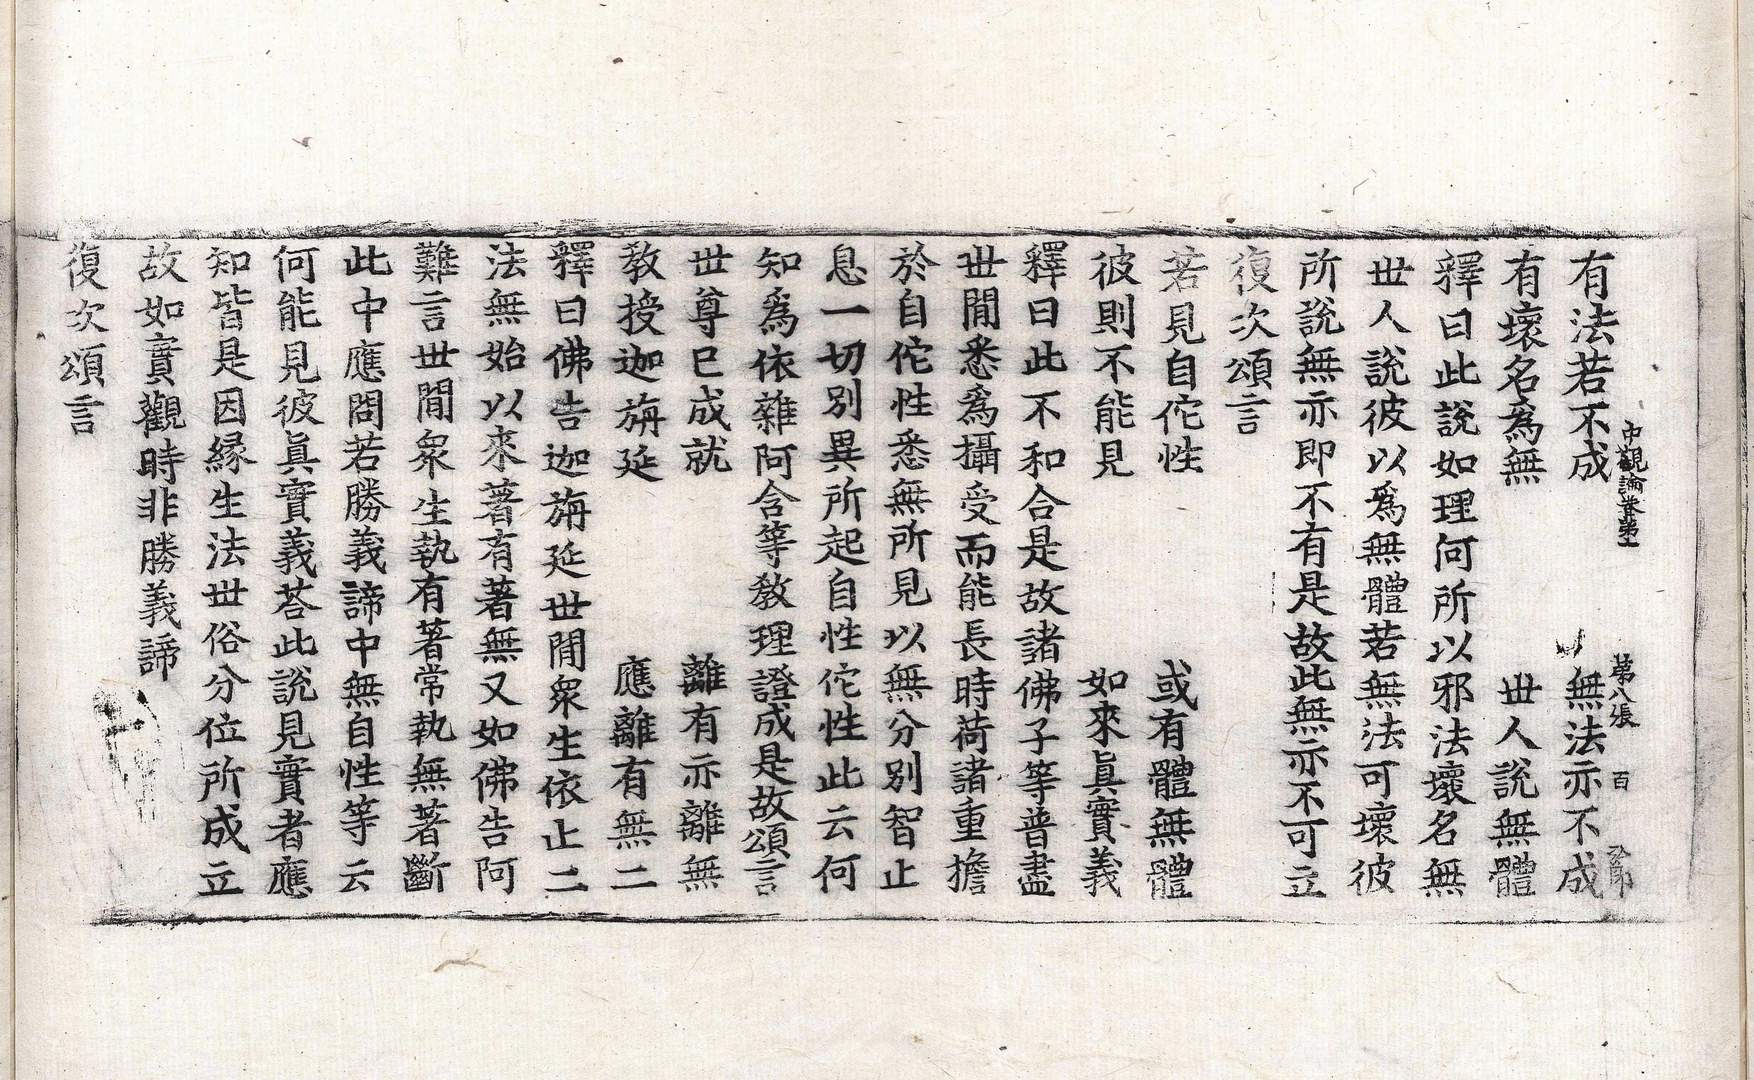 中觀論卷第十　第八張　百
有法若不成　無法亦不成
有壞名為無　世人說無體
釋曰此說如理何所以邪法壞名無
世人說彼以爲無體若無法可壞彼
所說無亦即不有是故此無亦不可立
復次頌言
若見自佗性　或有體無體
彼則不能見　如來眞實義
釋曰此不和合是故諸佛子等普盡
世間悉爲攝受而能長時荷諸重擔
於自佗性悉無所見以無分別智止
息一切別異所起自性佗性此云何
知爲依雜阿含等敎理證成是故頌言
世尊已成就　離有亦離無
敎授迦旃延　應離有無二
釋曰佛告迦旃延世間衆生依止二
法無始以來著有著無又如佛告阿
難言世間衆生執有著常執無著斷
此中應問若勝義諦中無自性等云
何能見彼眞實義荅此說見實者應
知皆是因緣生法世俗分位所成立
故如實觀時非勝義諦
復次頌言